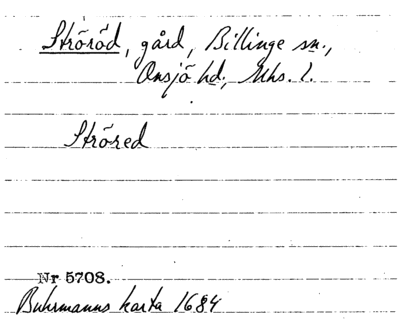 Ströröd, gård, Billinge sn.,
Onsjö hd., Mhs. l.
Ströred
Nr 5708.
Buhrmanns karta 1684